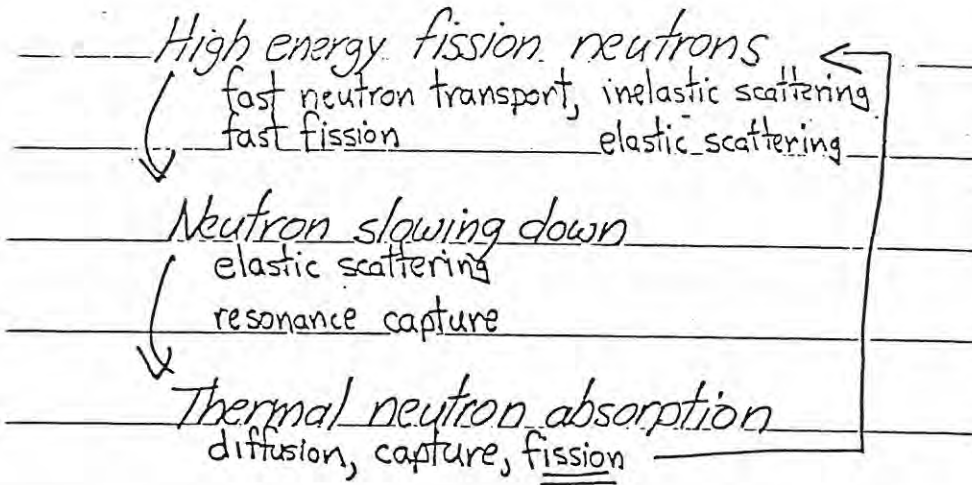 High energy fission neutrons
fast neutron transport, inelastic scattering
fast fission elastic scattering
Neutron slowing down
elastic scattering
resonance capture
Thermal neutron absorption
diffusion, capture, fission